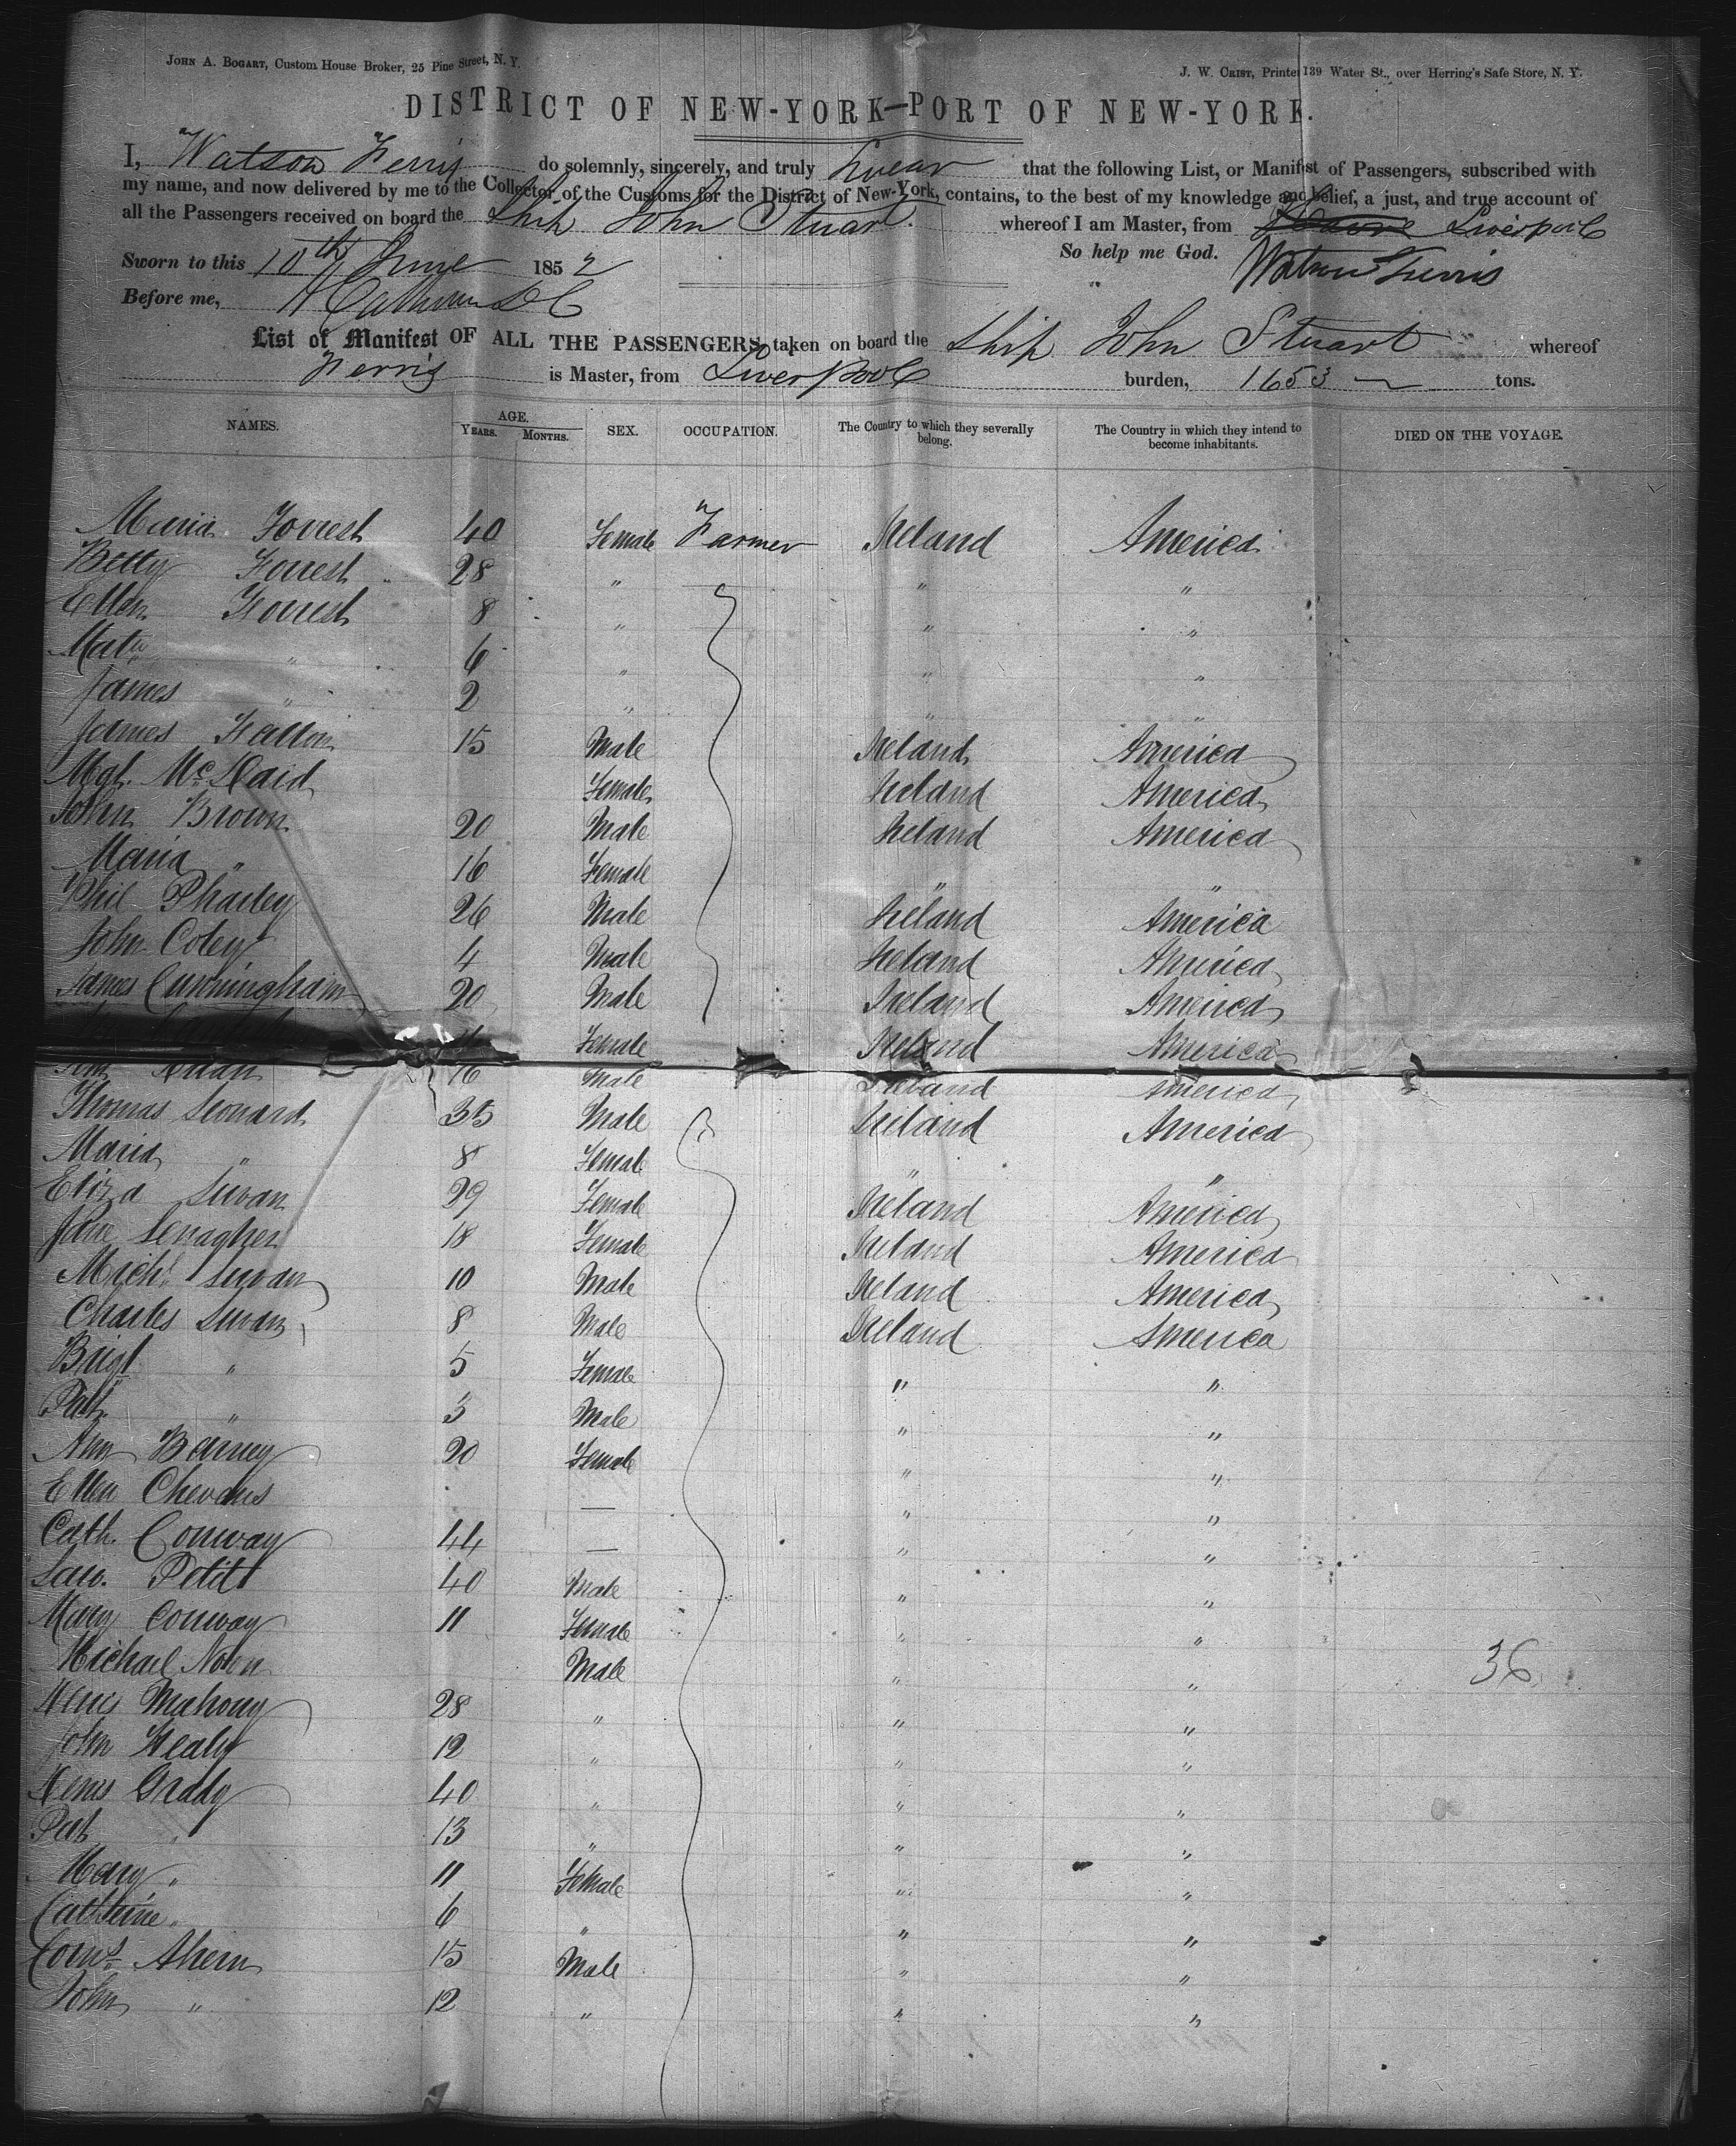 JOHN A. BOGART, Custom House Broker, 25 Pine Street, N. Y.
J. W. CRIST, Printer 139 Water St., over Herring's Safe Store, N. Y.
DISTRICT OF NEW-YORK—PORT OF NEW-YORK.
I, Watson Ferris do solemnly, sincerely, and truly swear that the following List, or Manifest of Passengers, subscribed with
my name, and now delivered by me to the Collector of the Customs for the District of New-York, contains, to the best of my knowledge and belief, a just, and true account of
all the Passengers received on board the Ship John Stuart. whereof I am Master, from Liverpool
So help me God.
Sworn to this 10th June 1852 Watson Ferris
Before me,
List of Manifest OF ALL THE PASSENGERS, taken on board the Ship John Stuart whereof
Ferris is Master, from Liverpool burden, 1653 tons.
NAMES. AGE. YEARS. MONTHS. SEX. OCCUPATION. The Country to which they severally belong. The Country in which they intend to become inhabitants. DIED ON THE VOYAGE.
Maria Forrest 40 Female Farmer Ireland America
Betty Forrest 28 " " "
Ellen Forrest 8 " " "
" 6 " " "
James " 2 " " "
James Fallon 15 Male Ireland America
Mgt. McDaid Female Ireland America
John Brown 20 Male Ireland America
Maria " 16 Female " "
Phil 26 Male Ireland America
John Coley 4 Male Ireland America
James Cunningham 20 Male Ireland America
Female Ireland America
16 Male Ireland America
Thomas Leonard 35 Male Ireland America
Maria " 8 Female " "
Eliza Swan 29 Female Ireland America
Jane 18 Female Ireland America
Michl Swan 10 Male Ireland America
Charles Swan 8 Male Ireland America
Brigt " 5 Female " "
Patt " 3 Male " "
Ann 20 Female " "
Ellen — " "
Cath. Conway 44 — " "
Law. Petit 40 Male " "
Mary Conway 11 Female " "
Michael Nolen Male " " 36
Denis Mahony 28 " " "
John Healy 12 " " "
Denis Grady 40 " " "
Pat " 13 " " "
Mary " 11 Female " "
Catherine " 6 " " "
Corns Ahern 15 Male " "
John " 12 " " "